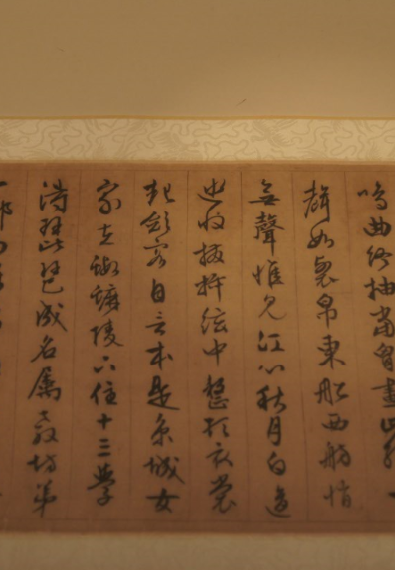 鳴曲終抽當胷畫四絃一
聲如裂帛東舩西舫悄
無聲惟見江心秋月白逡
巡收撥插絃中整頓衣裳
起斂容自言本是京城女
家在蝦蟆陵下住十三學
得琵琶成名屬教坊第
一部